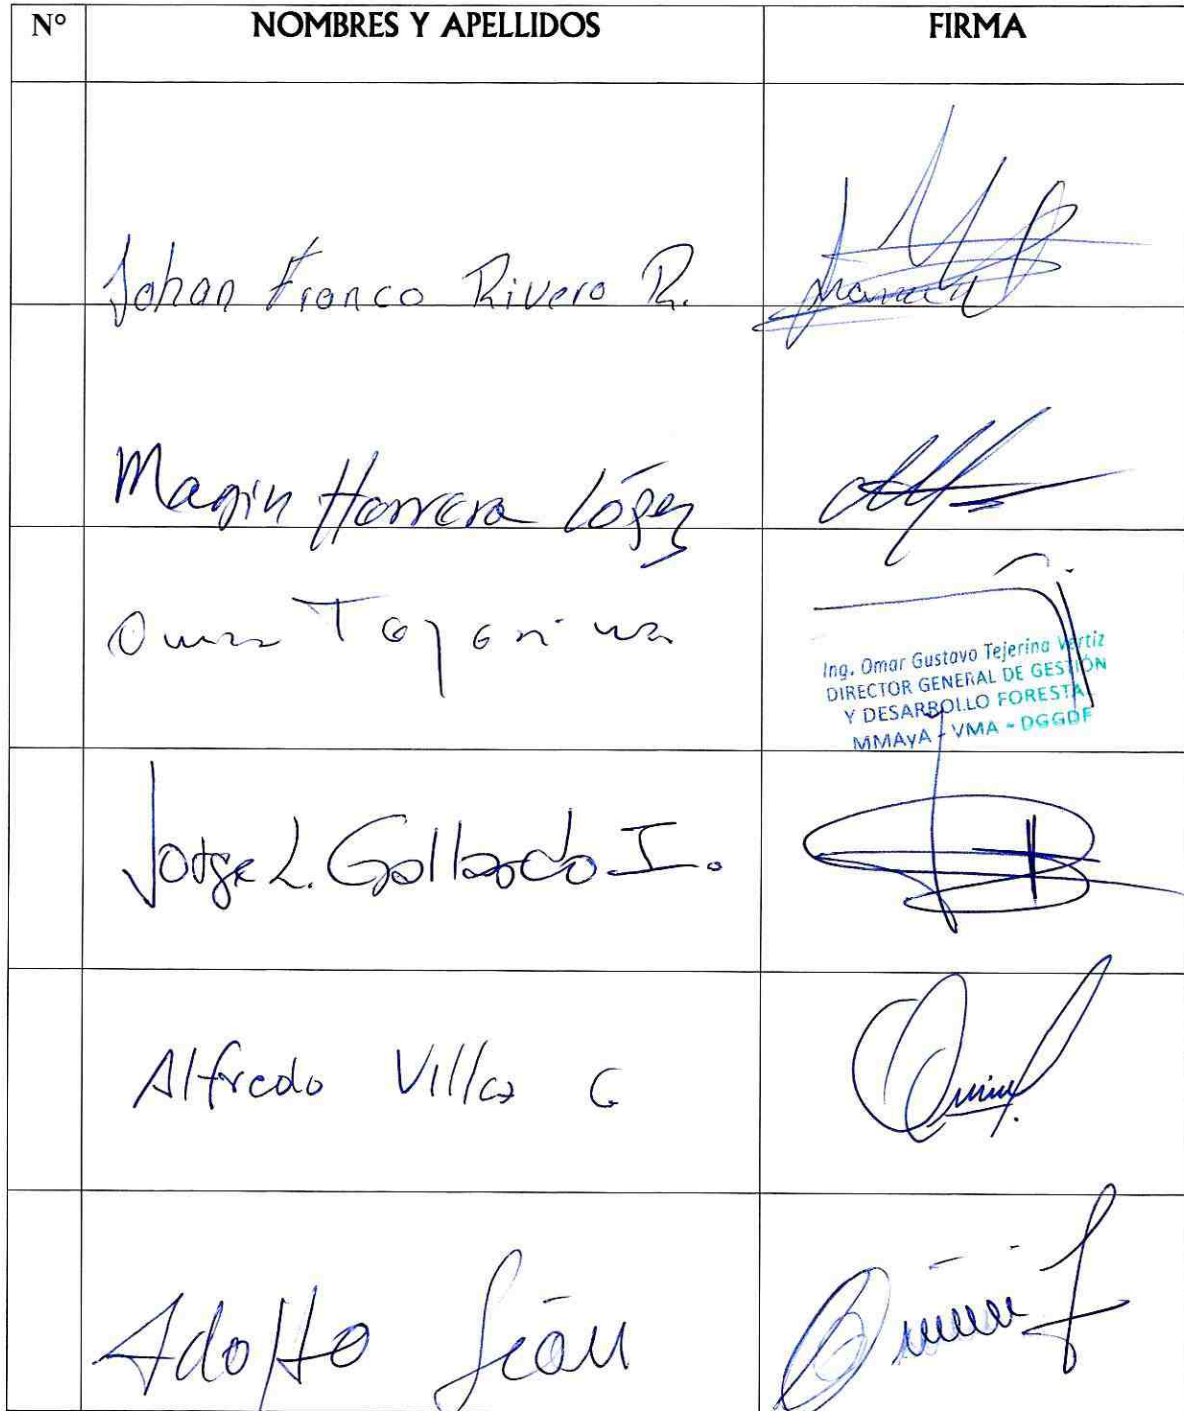 N° NOMBRES Y APELLIDOS FIRMA
Johan Franco Rivero R.
Magin Herrera López
Omar Tejerina
Ing. Omar Gustavo Tejerina Vertiz
DIRECTOR GENERAL DE GESTIÓN
Y DESARROLLO FORESTAL
MMAyA - VMA - DGGDF
Jorge L. Gallardo I.
Alfredo Villca G
Adolfo León